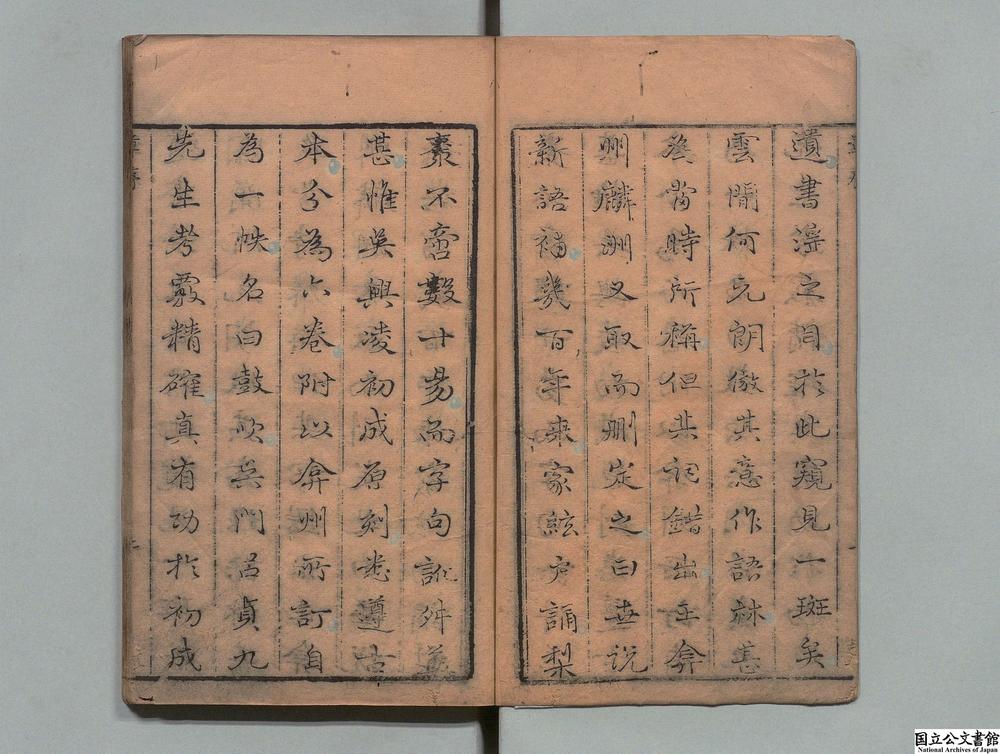 遺書滛之目於此窺見一斑矣
雲間何元朗倣其意作語林甚
為當時所稱但其詞錯出王弇
州麟洲又取而刪定之曰世說
新語補幾百年来家絃户誦梨
棗不啻數十易而字句訛舛益
甚惟吳興凌初成原刻悉遵古
本分為六卷附以弇州所訂自
為一帙名曰鼓吹吳門呂貞九
先生考覈精確真有功於初成
国立公文書館
National Archives of Japan